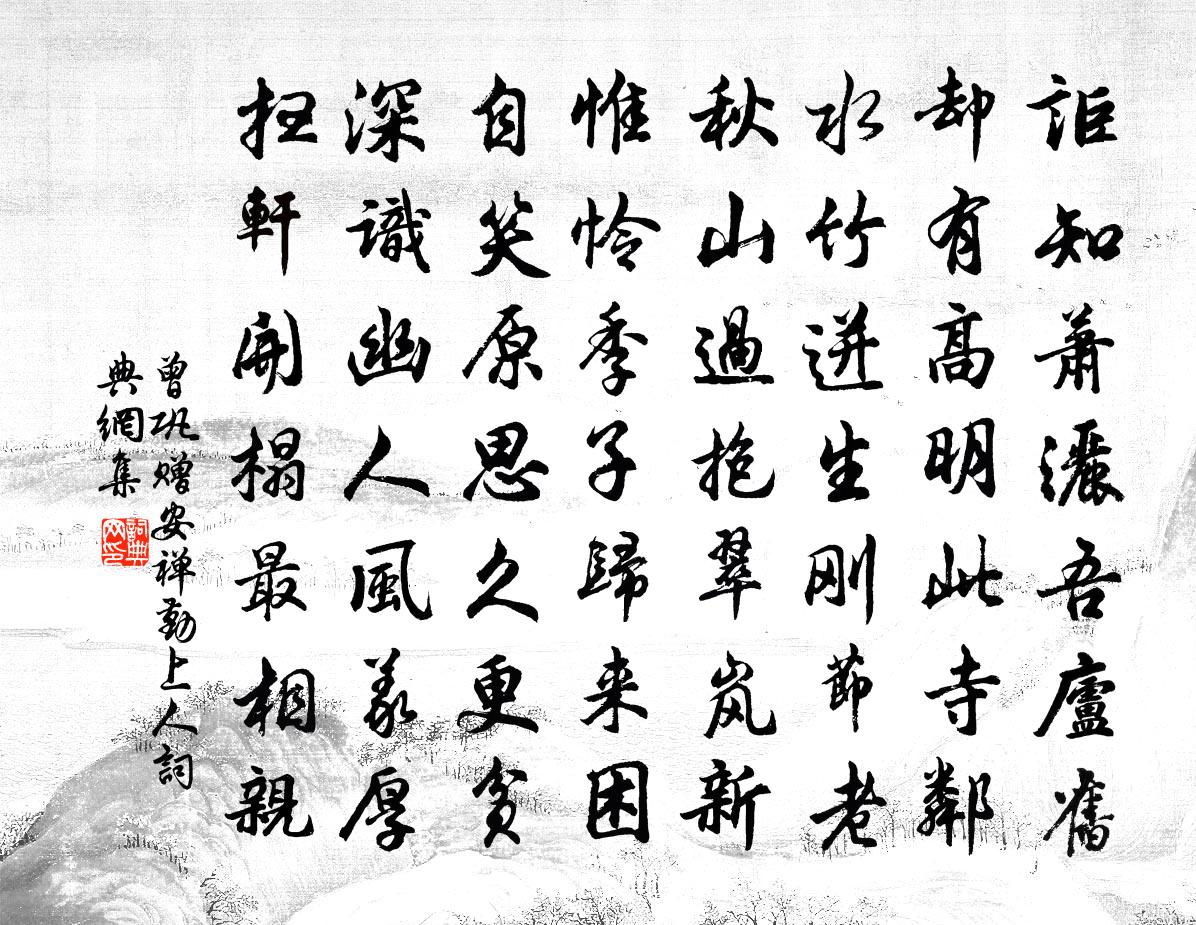 詎知蕭灑吾廬舊
却有高明此寺鄰
水竹迸生剛節老
秋山過抱翠岚新
惟怜季子歸来困
自笑原思久更貧
深識幽人風義厚
掃軒開榻最相親
曾巩赠安禅勤上人詞
典網集
詞典网印